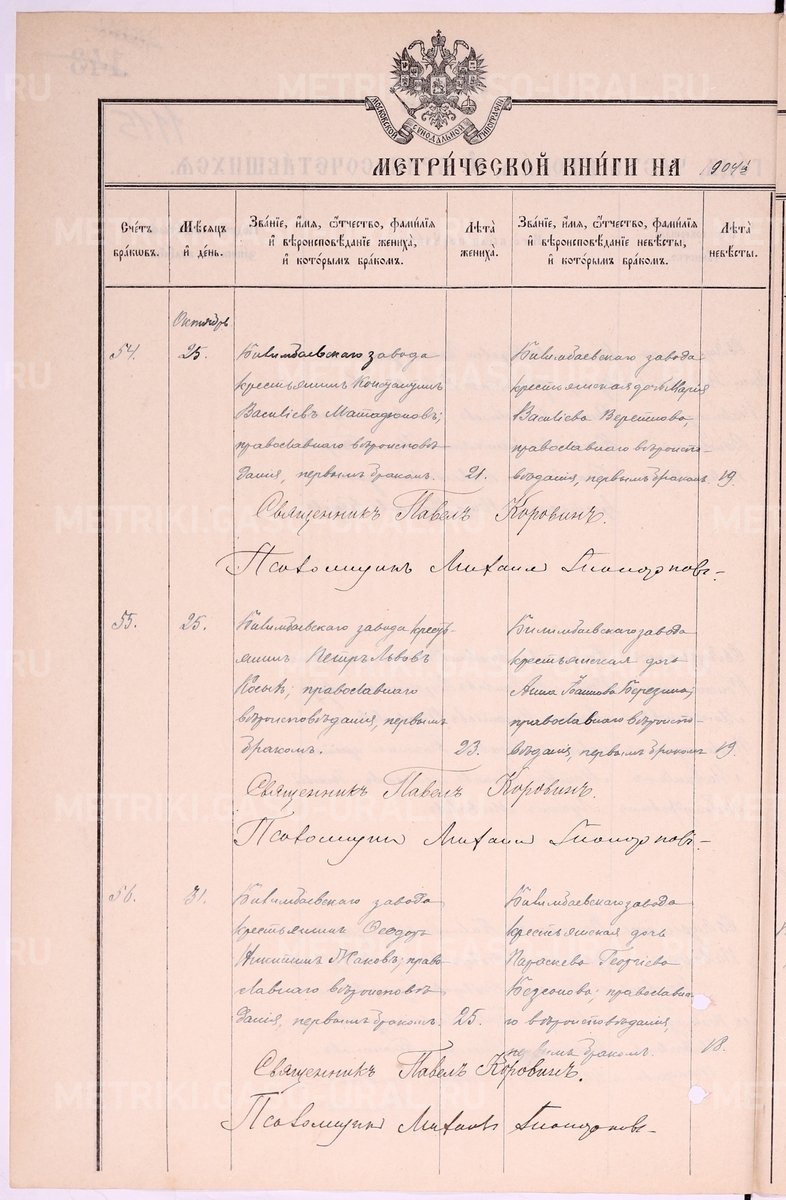 МОСКОВСКОЙ СѴНОДАЛЬНОЙ ТИПОГРАФІИ
МЕТРИ́ЧЕСКОЙ КНИ́ГИ НА 1904й
Сче́тъ бра́кѡвъ.
Мѣ́сѧцъ и҆ де́нь.
Зва́нїе, и҆́мѧ, ѻ҆́тчество, фами́лїѧ и҆ вѣроисповѣ́данїе жениха̀, и҆ кото́рымъ бра́комъ.
Лѣта̀ жениха̀.
Зва́нїе, и҆́мѧ, ѻ҆́тчество, фами́лїѧ и҆ вѣроисповѣ́данїе невѣ́сты, и҆ кото́рымъ бра́комъ.
Лѣта̀ невѣ́сты.
Октябрь
54. 25.
Билимбаевскаго завода
крестьянинъ Константинъ
Василіевъ
православнаго вѣроисповѣ
данія, первымъ бракомъ. 21.
Билимбаевскаго завода
крестьянская дочь Марія
Василіева
православнаго вѣроиспо-
вѣданія, первымъ бракомъ. 19.
Священникъ Павелъ Коровинъ.
Псаломщикъ Михаил Пономаревъ.
55. 25.
Билимбаевскаго завода кресть-
янинъ Петръ Львовъ
Косыхъ; православнаго
вѣроисповѣданія, первымъ
бракомъ. 23.
Билимбаевскаго завода
крестьянская дочь
Анна Іванова Березина;
православнаго вѣроиспо-
вѣданія, первымъ бракомъ 19.
Священникъ Павелъ Коровинъ.
Псаломщикъ Михаил
56. 31.
Билимбаевскаго завода
крестьянинъ Ѳеодоръ
право-
славнаго вѣроисповѣ
данія, первымъ бракомъ. 25.
Билимбаевскаго завода
крестьянская дочь
Параскева Георгіева
православна-
го вѣроисповѣданія,
первымъ бракомъ. 18.
Священникъ Павелъ Коровинъ.
Псаломщикъ Михаил